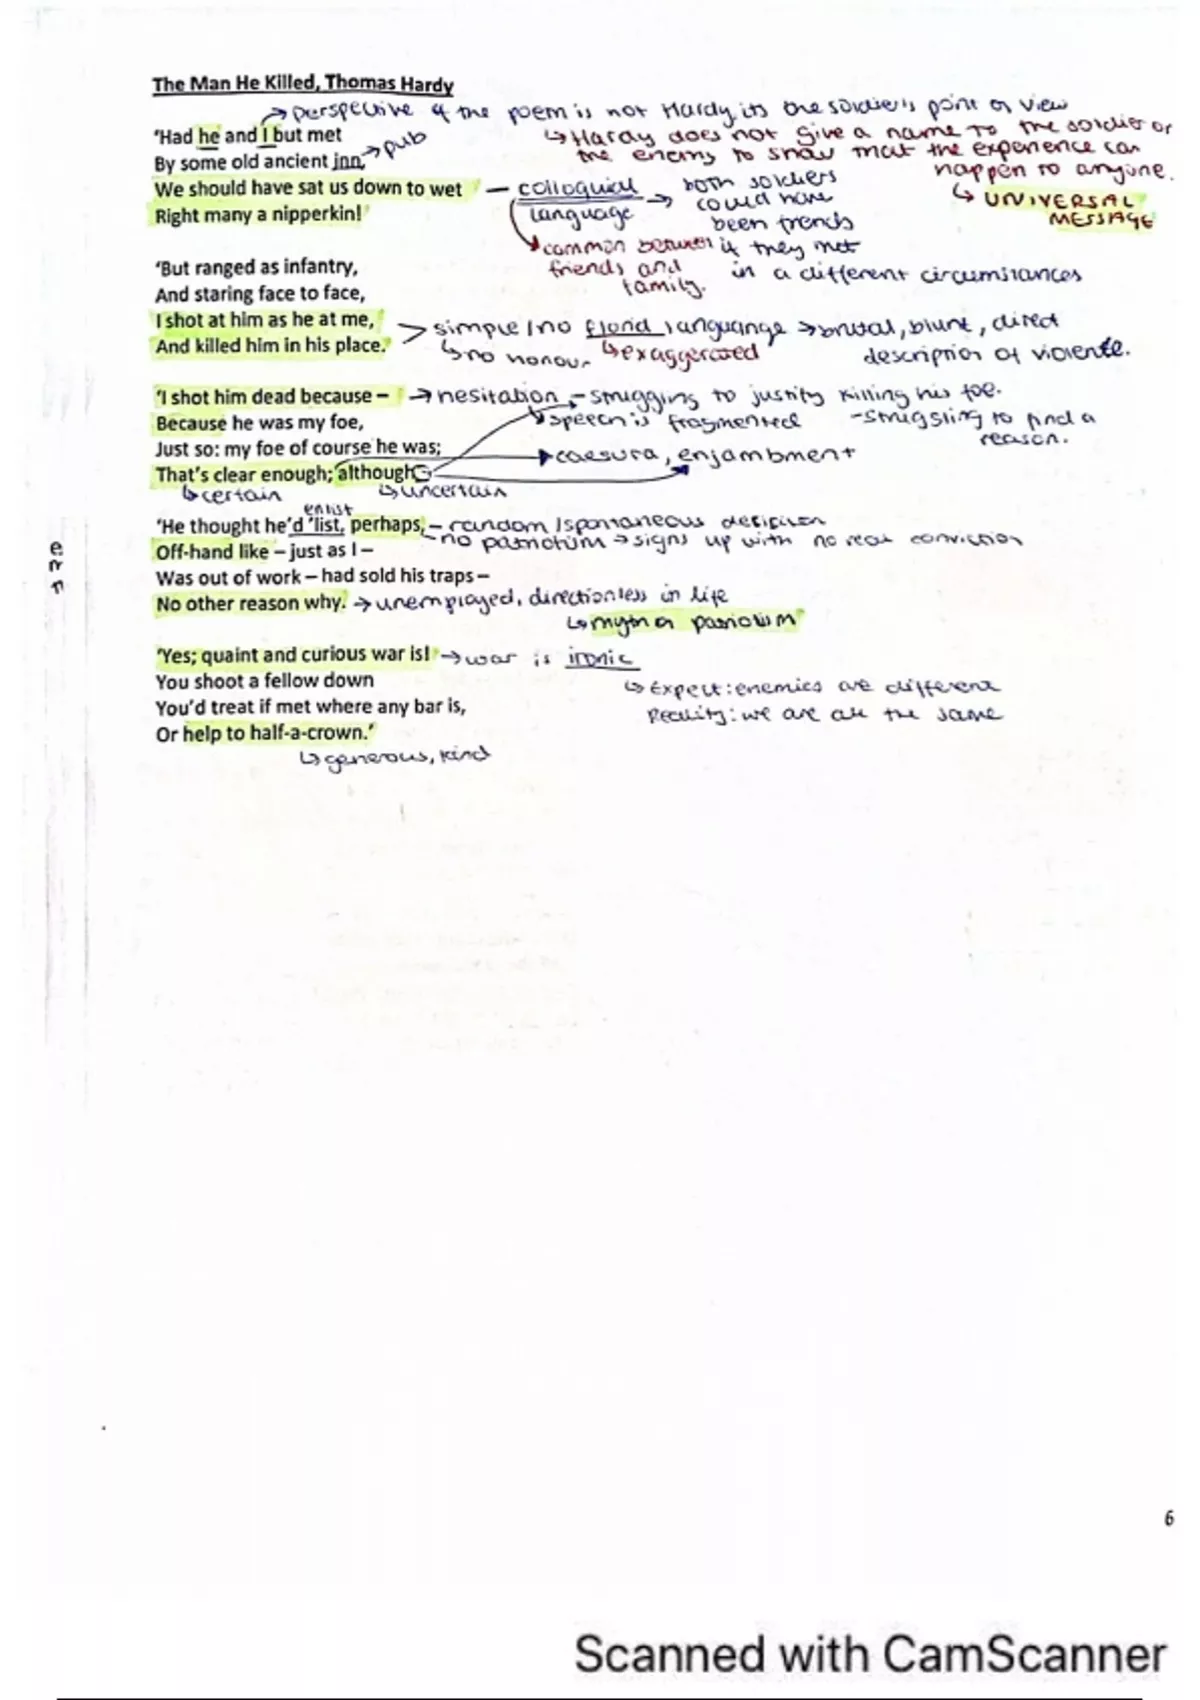 The Man He Killed, Thomas Hardy
→ perspective of the poem is not Hardy, its the soldier's point of view
'Had he and I but met
↳ Hardy does not give a name to the soldier or
the enemy to show that the experience can
happen to anyone.
↳ UNIVERSAL
MESSAGE
By some old ancient inn, → pub
We should have sat us down to wet — colloquial language → both soldiers
could have
been friends
if they met
in a different circumstances
common between
friends and
family.
Right many a nipperkin!
'But ranged as infantry,
And staring face to face,
I shot at him as he at me, > simple/no florid languange → brutal, blunt, direct
description of violente.
And killed him in his place. ↳ no honour ↳ exaggerated
'I shot him dead because – → hesitation – struggling to justify killing his foe.
Because he was my foe, speech is fragmented - struggling to find a
reason.
Just so: my foe of course he was; caesura, enjambment
That's clear enough; although
↳ certain ↳ uncertain
enlist
'He thought he'd 'list, perhaps, – random/spontaneous decision
- no patriotism → signs up with no real conviction
Off-hand like – just as I –
Was out of work – had sold his traps –
No other reason why. → unemployed, directionless in life
↳ myth of patriotism
'Yes; quaint and curious war is! → war is ironic
↳ Expect: enemies are different
Reality: we are all the same
You shoot a fellow down
You'd treat if met where any bar is,
Or help to half-a-crown.'
↳ generous, kind
6
Scanned with CamScanner